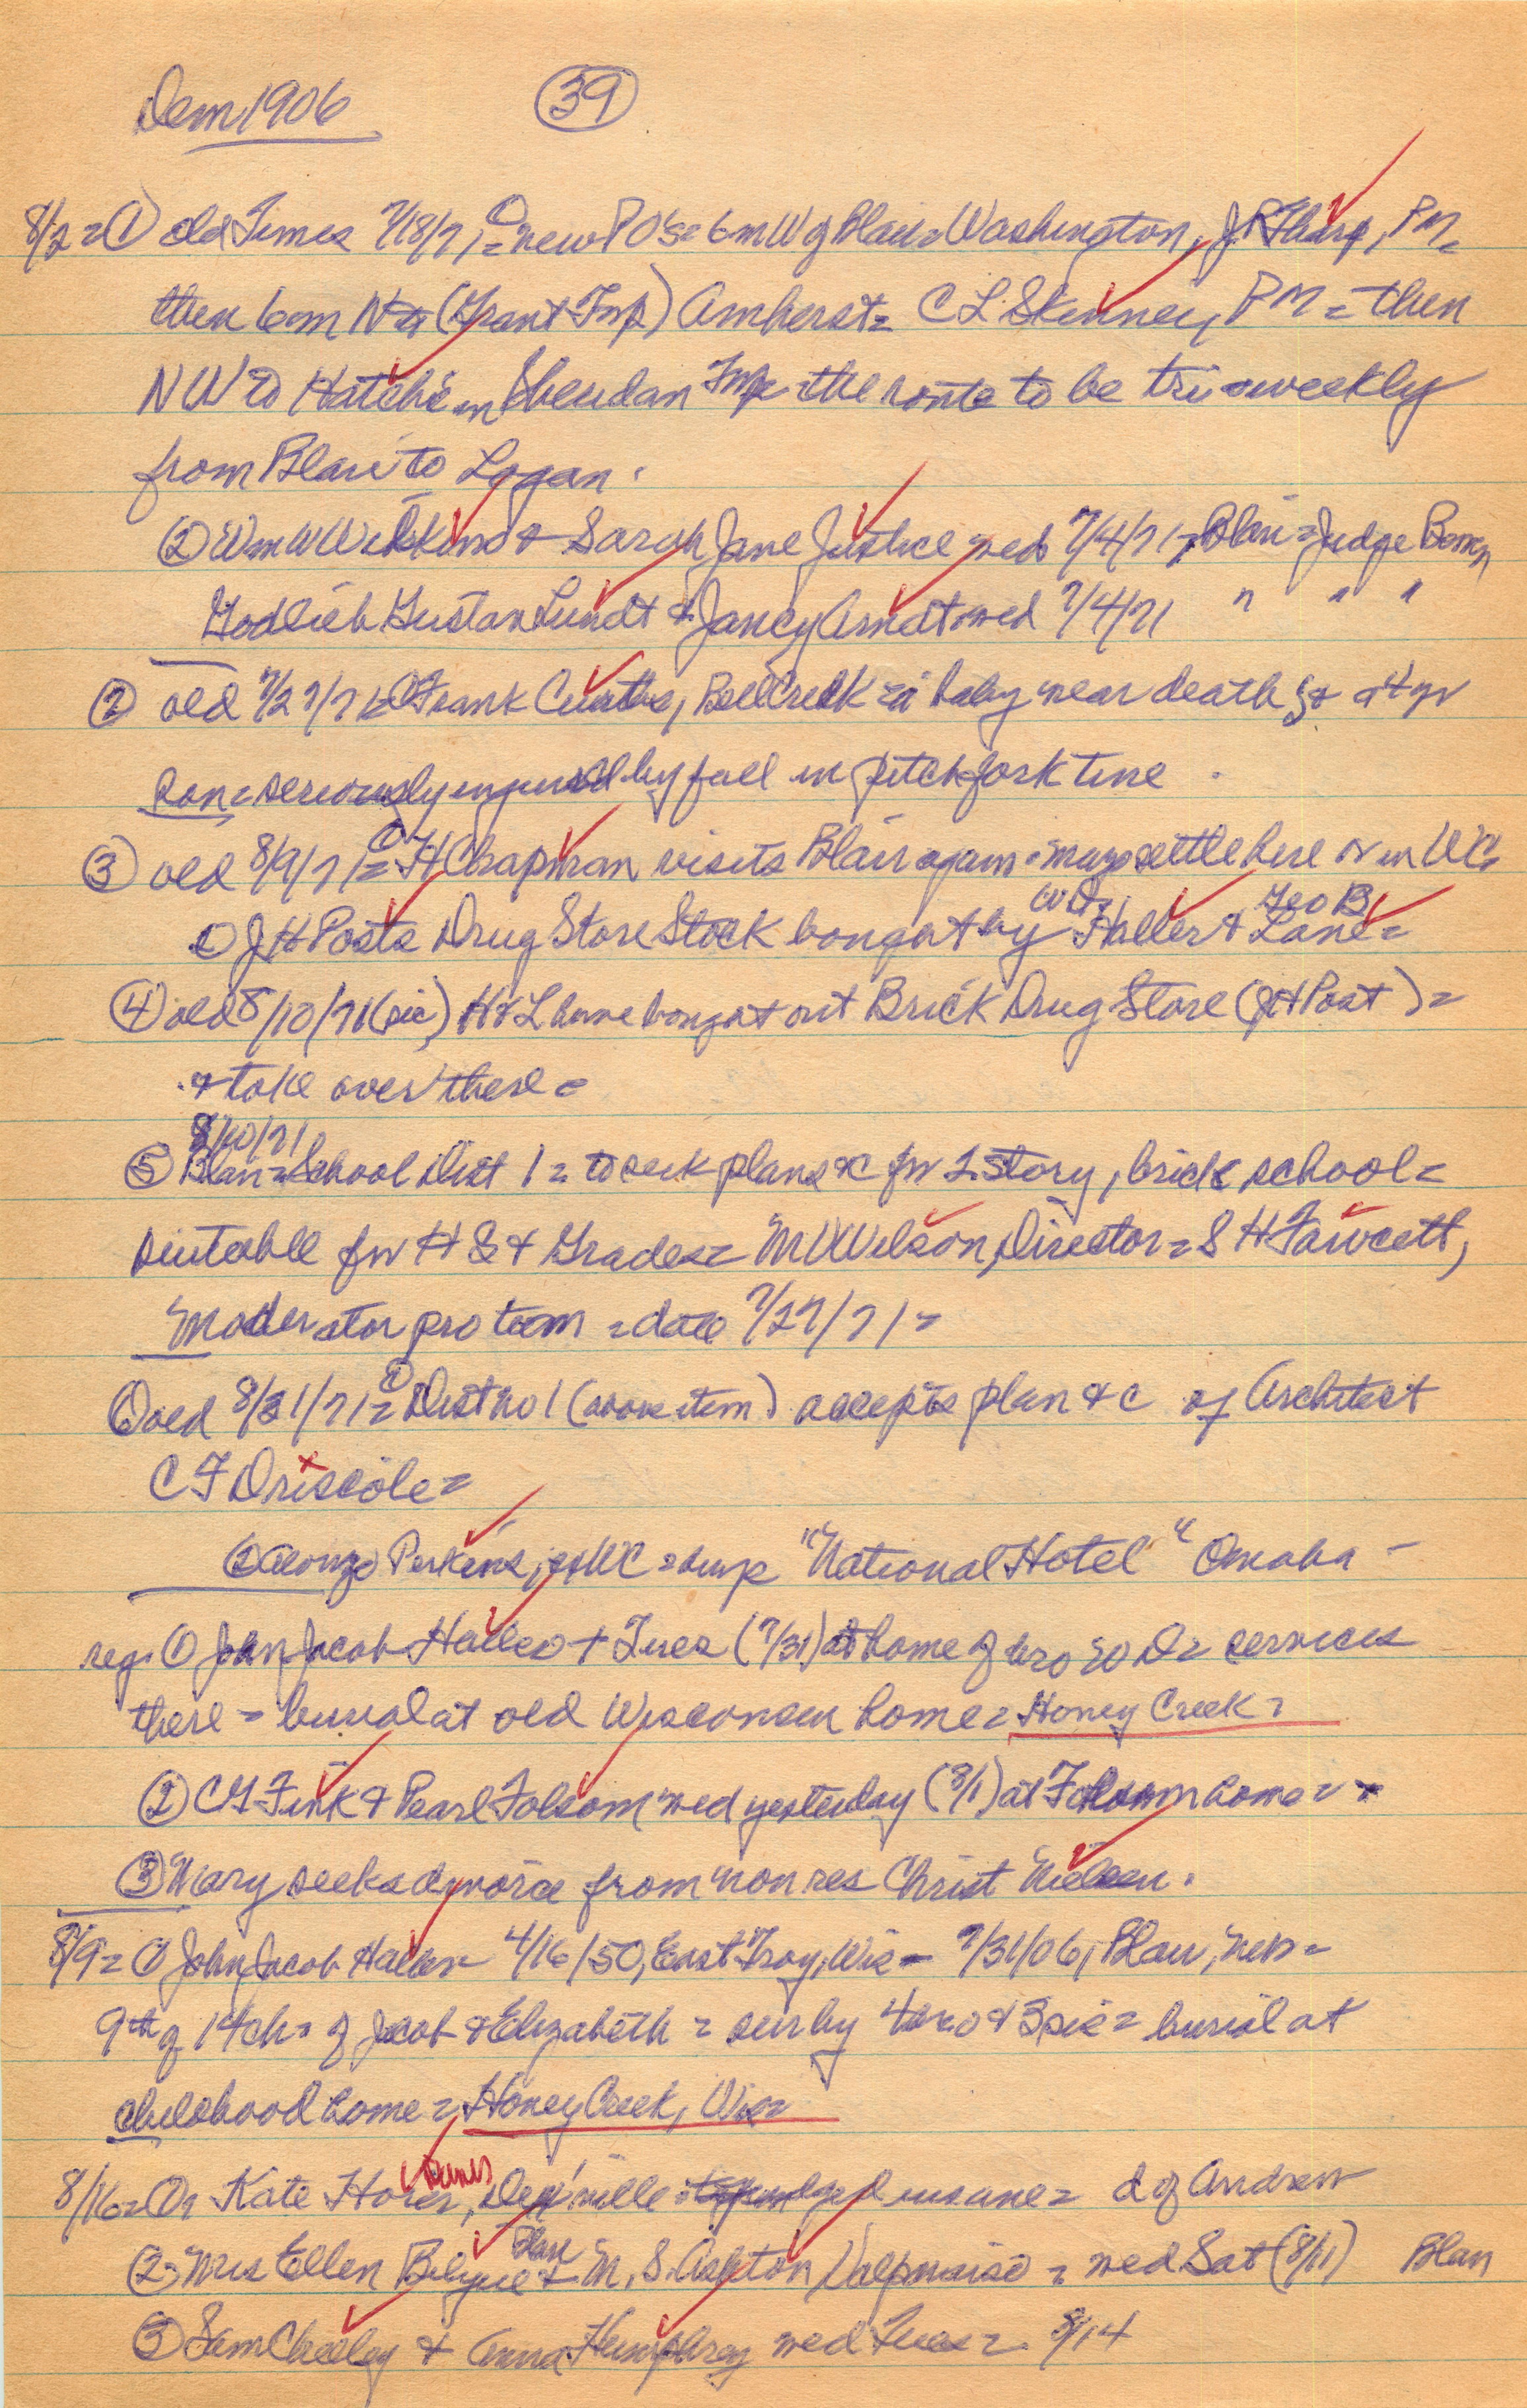 Dem 1906 (39)
8/2 = (1) old Times 7/13/71 = (1) new PO's = 6 m W of Blair = Washington, J R Tharp, PM =
then 6 m N (Grant Twp) Amherst = C L Skinney, PM = then
NW to Hatch's in Sheridan Twp = the route to be tri=weekly
from Blair to Logan.
(2) Wm W Wilkins & Sarah Jane Justice wed 7/4/71, Blair = Judge
Godlieb Gustav Lundt & Jancy Arndt wed 7/4/71 " " "
(2) old 7/27/71 (1) Frank Curtis, Bell Creek = a baby near death & a 4 yr
son = seriously injured by fall in pitchfork tine.
(3) old 8/9/71 = (1) H Chapman visits Blair again = may settle here or in WC
(2) J H Posts Drug Store Stock bought by W D Haller & Geo B Lane =
(4) old 8/10/71 (sic) H & L have bought out Brick Drug Store (J H Post) =
& take over there =
8/10/71
(5) Blair = School Dist 1 = to seek plans &c for 2 story, brick school =
suitable for H S & Grades = M V Wilson, Director = S H Fawcett,
Moderator pro tem = date 7/27/71 =
(6) old 8/31/71 = (1) Dist No 1 (above item) accepts plan &c of Architect
C F Driscole =
(2) Alonzo Perkins, of WC = supt "National Hotel" Omaha -
reg. (1) John Jacob Haller + Tues (7/31) at home of bro W D = services
there = burial at old Wisconsin home = Honey Creek =
(2) C G Fink & Pearl Folsom wed yesterday (8/1) at Folsom home =
(3) Mary seeks divorce from non res Christ Nielsen.
8/9 = (1) John Jacob Haller = 4/16/50, East Troy, Wis - 7/31/06, Blair, Neb =
9th of 14 ch = of Jacob & Elizabeth = sur by 4 bro & 3 sis = burial at
childhood home = Honey Creek, Wis =
8/16 = (1) Kate , Den'ville insane = d of Andrew
(2) Mrs Ellen , Blair & M. S. Ashton, Valparaiso = wed Sat (8/11) Blair
(3) Sam & Anna Humphrey wed Tues = 8/14